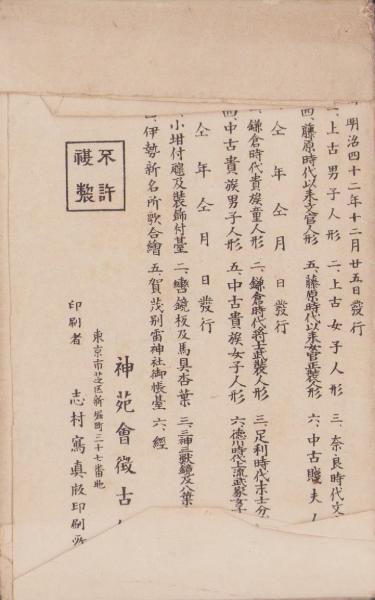 明治四十二年十二月廿五日發行
一、上古男子人形　二、上古女子人形　三、奈良時代文
四、藤原時代以来文官人形　五、藤原時代以来女官正裝人形　六、中古賤夫人
仝年仝月日發行
一、鎌倉時代貴族童人形　二、鎌倉時代將士武裝人形　三、足利時代末士分
四、中古貴族男子人形　五、中古貴族女子人形　六、德川時代上流武家女子
仝年仝月日發行
小坩付𤭯及裝飾付臺　二、轡鏡板及馬具杏葉　三、三神三獸鏡及八葉
四、伊勢新名所歌合繪　五、賀茂別雷神社御帳臺　六、經
不許
複製
神苑會徵古
東京市芝区新堀町三十七番地
印刷者　志村寫真版印刷所